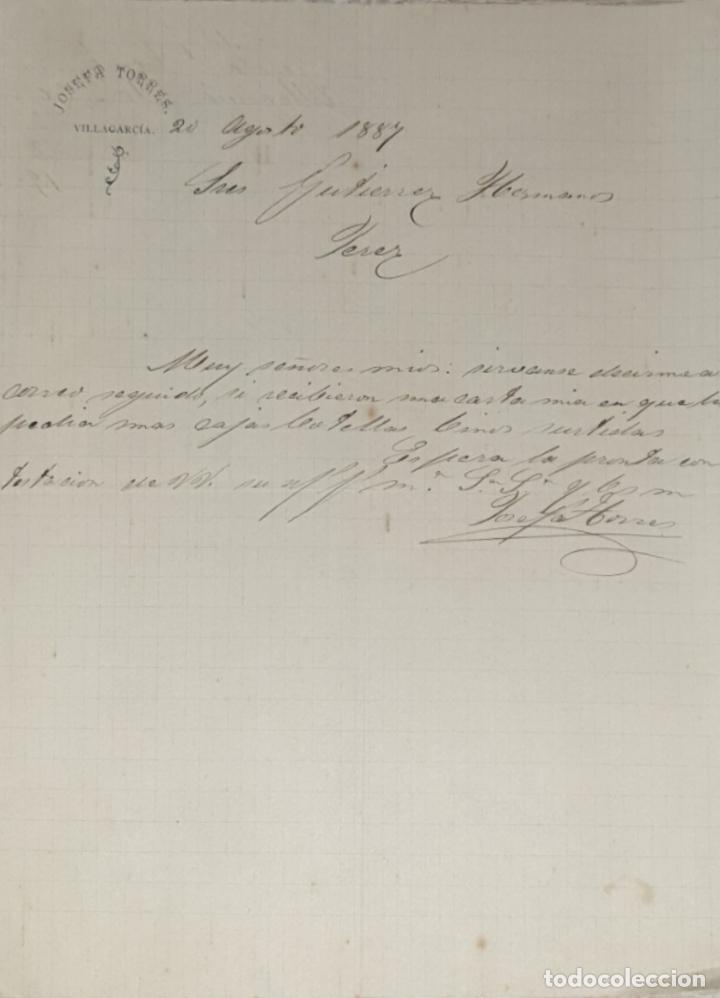 JOSEFA TORRES.
VILLAGARCÍA. 20 Agosto 1887
Sres Gutierrez Hermanos
Jerez
Muy señores mios: sirvanse decirme a
correo seguido, si recibieron una carta mia en que les
pedia unas cajas botellas binos surtidas
Espera la pronta con
testacion de VV. su aff m.ª S.ª S.ª q b s m
Josefa Torres
todocoleccion